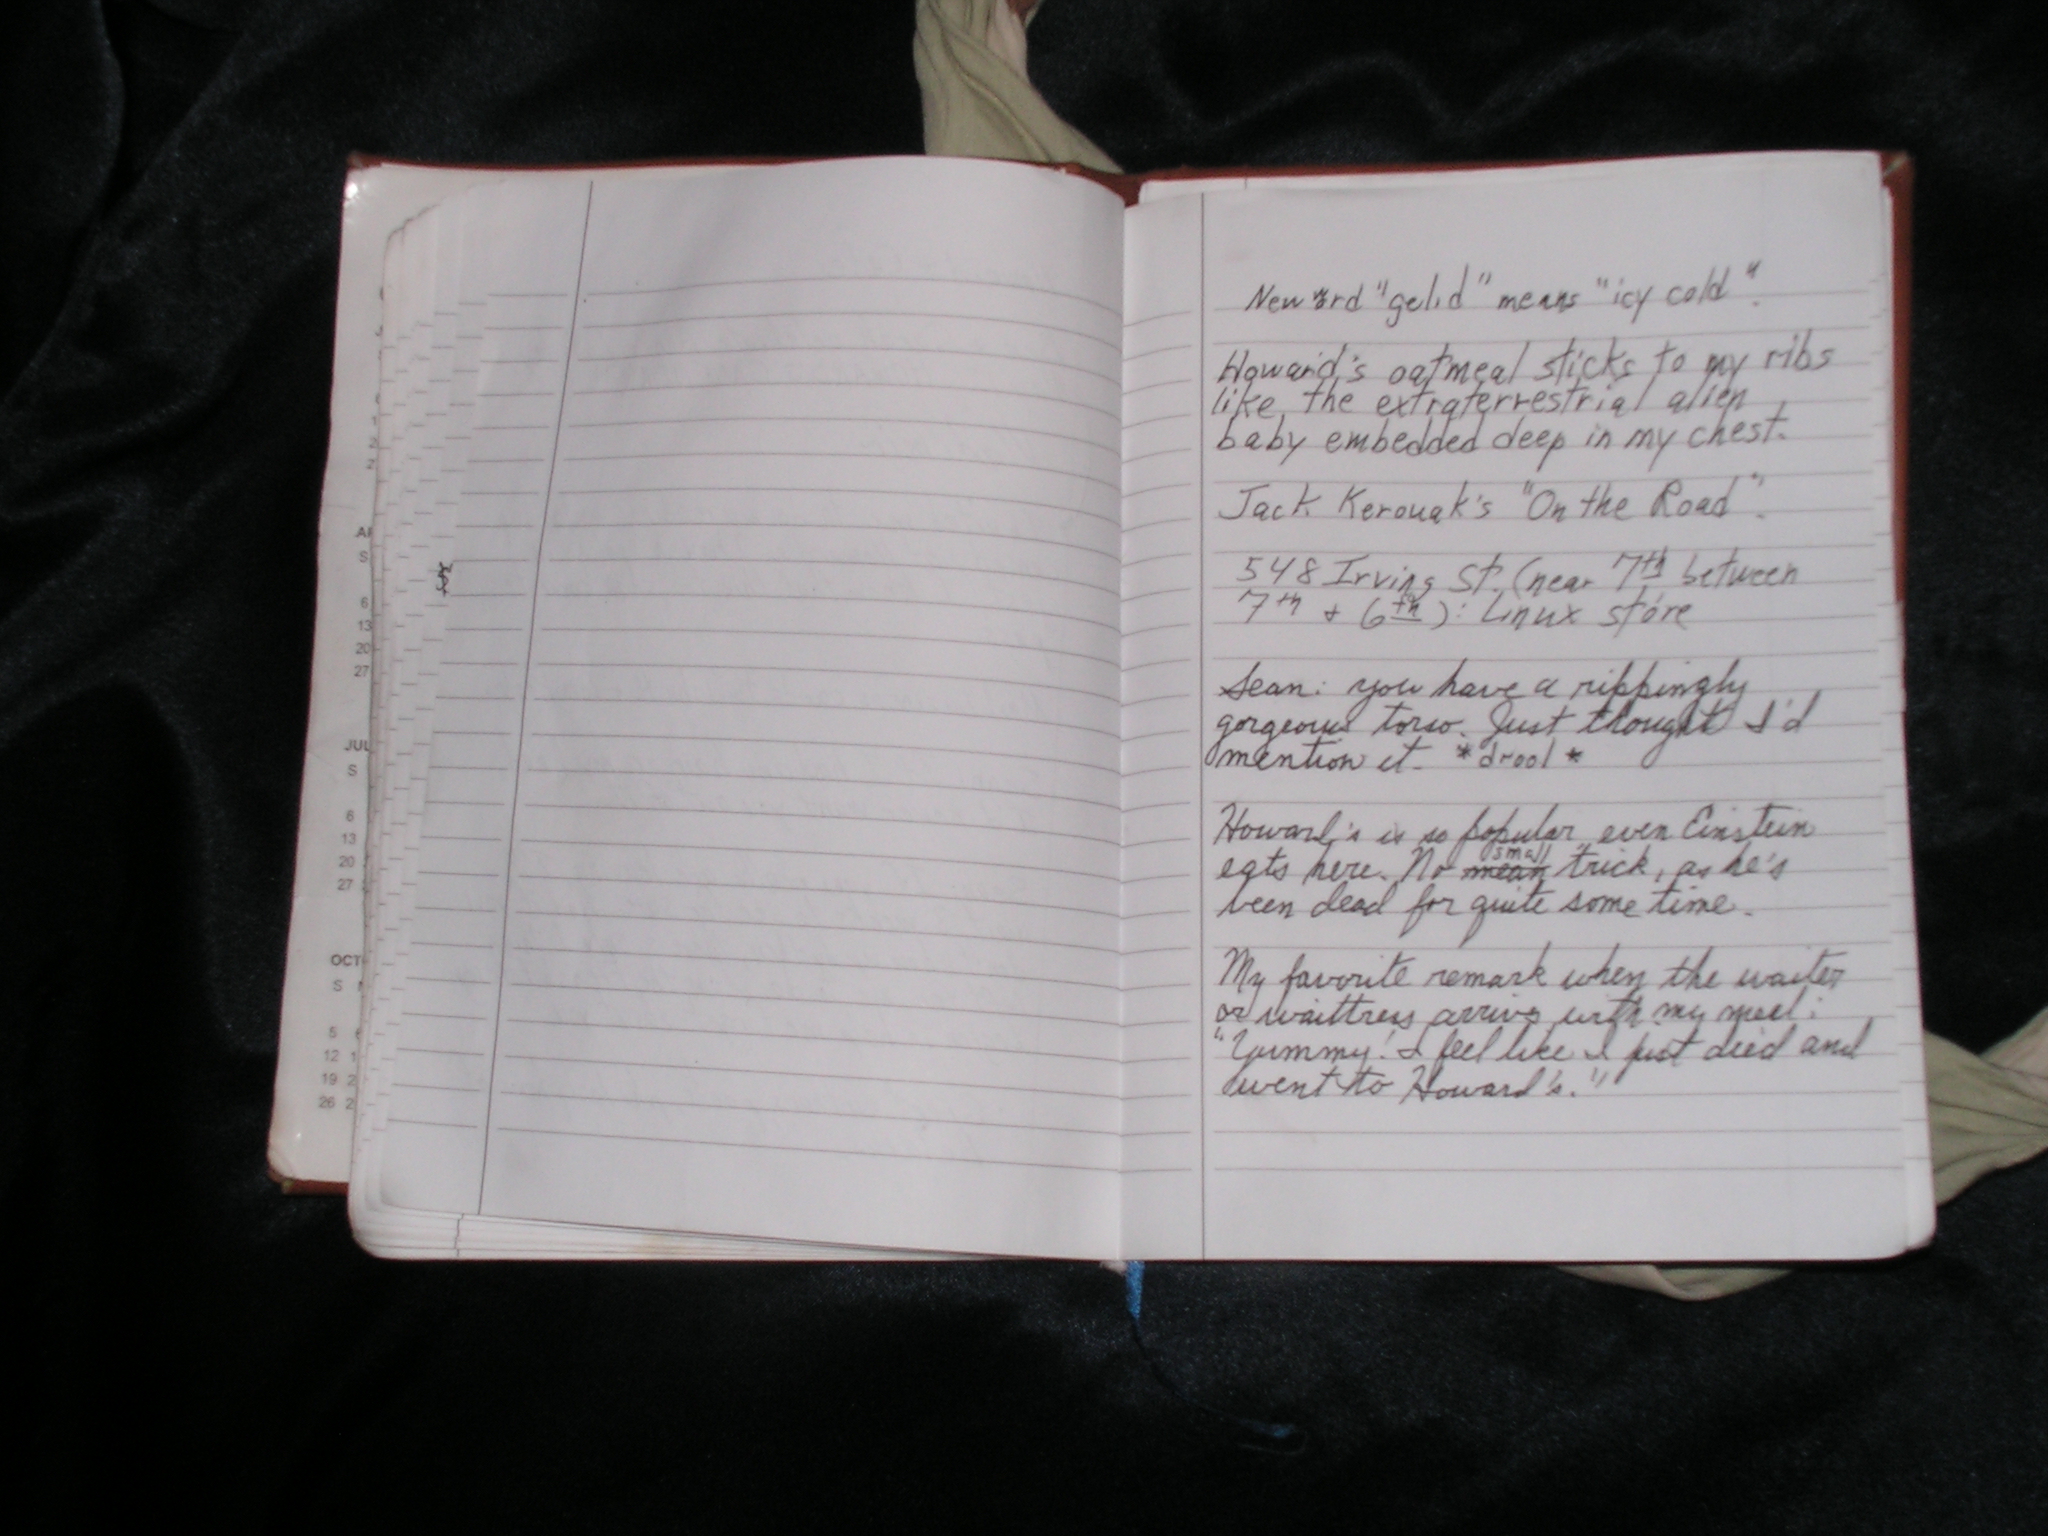 New word "gelid" means "icy cold".
Howard's oatmeal sticks to my ribs
like the extraterrestrial alien
baby embedded deep in my chest.
Jack Kerouak's "On the Road".
548 Irving St. (near 7th between
7th & 6th): Linux store
Sean: you have a rippingly
gorgeous torso. Just thought I'd
mention it. *drool*
Howard's is so popular, even Einstein
eats here. No mean small trick, as he's
been dead for quite some time.
My favorite remark when the waiter
or waittress arrives with my meal:
"Yummy! I feel like I just died and
went to Howard's."
JUL
S
6
13
20
27
OCT
S
5
12
19
26